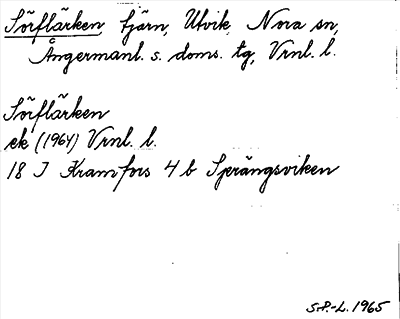 Sörflärken, tjärn, Utvik, Nora sn,
Ångermanl. s. doms. tg, Vrnl. l.
Sörflärken
ek (1964) Vrnl. l.
18 J Kramfors 4 b Sprängsviken
S.P.-L. 1965